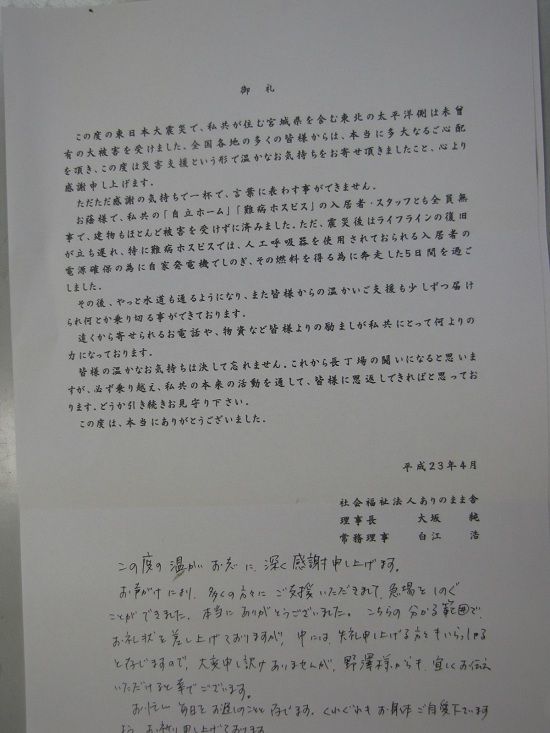 御 礼
この度の東日本大震災で、私共が住む宮城県を含む東北の太平洋側は未曾
有の大被害を受けました。全国各地の多くの皆様からは、本当に多大なるご心配
を頂き、この度は災害支援という形で温かなお気持ちをお寄せ頂きましたこと、心より
感謝申し上げます。
ただただ感謝の気持ちで一杯で、言葉に表わす事ができません。
お蔭様で、私共の「自立ホーム」「難病ホスピス」の入居者・スタッフとも全員無
事で、建物もほとんど被害を受けずに済みました。ただ、震災後はライフラインの復旧
が立ち遅れ、特に難病ホスピスでは、人工呼吸器を使用されておられる入居者の
電源確保の為に自家発電機でしのぎ、その燃料を得る為に奔走した5日間を過ご
しました。
その後、やっと水道も通るようになり、また皆様からの温かいご支援も少しずつ届け
られ何とか乗り切る事ができております。
遠くから寄せられるお電話や、物資など皆様よりの励ましが私共にとって何よりの
力になっております。
皆様の温かなお気持ちは決して忘れません。これから長丁場の闘いになると思いま
すが、必ず乗り越え、私共の本来の活動を通して、皆様に恩返しできればと思ってお
ります。どうか引き続きお見守り下さい。
この度は、本当にありがとうございました。
平成23年4月
社会福祉法人ありのまま舎
理事長 大坂 純
常務理事 白江 浩
この度の温かいお志に、深く感謝申し上げます。
お声がけにより、多くの方々にご支援いただきまして、急場をしのぐ
ことができました。本当にありがとうございました。こちらの分かる範囲で、
お礼状を差し上げておりますが、中には、失礼申し上げる方もいらっしゃる
と存じますので、大変申し訳ありませんが、野澤様からも、宜しくお伝え
いただけると幸でございます。
お忙しい毎日をお過しのことと存じます。くれぐれもお身体ご自愛下さいます